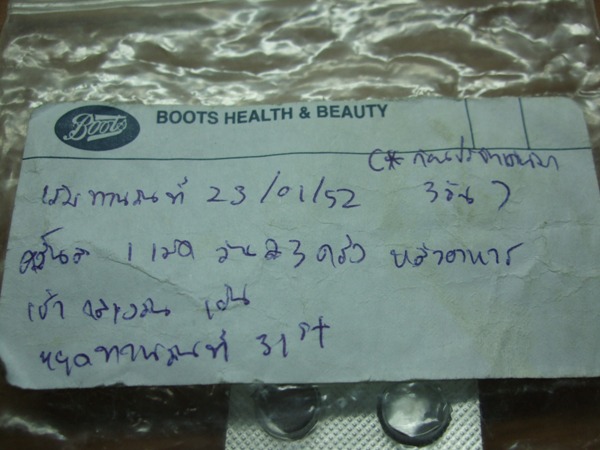 Boots
BOOTS HEALTH & BEAUTY
(* ก่อนประจำเดือนมา
3 วัน )
เริ่มทานวันที่ 23/01/52
ครั้งละ 1 เม็ด วันละ 3 ครั้ง หลังอาหาร
เช้า กลางวัน เย็น
หยุดทานวันที่ 31st